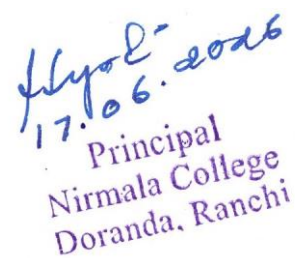 17.06.2026
Principal
Nirmala College
Doranda, Ranchi